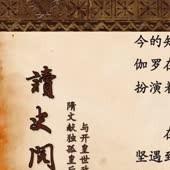 今的知
伽罗在
扮演
在
坚遇到
与开皇世政
隋文献独孤皇后
讀史閱